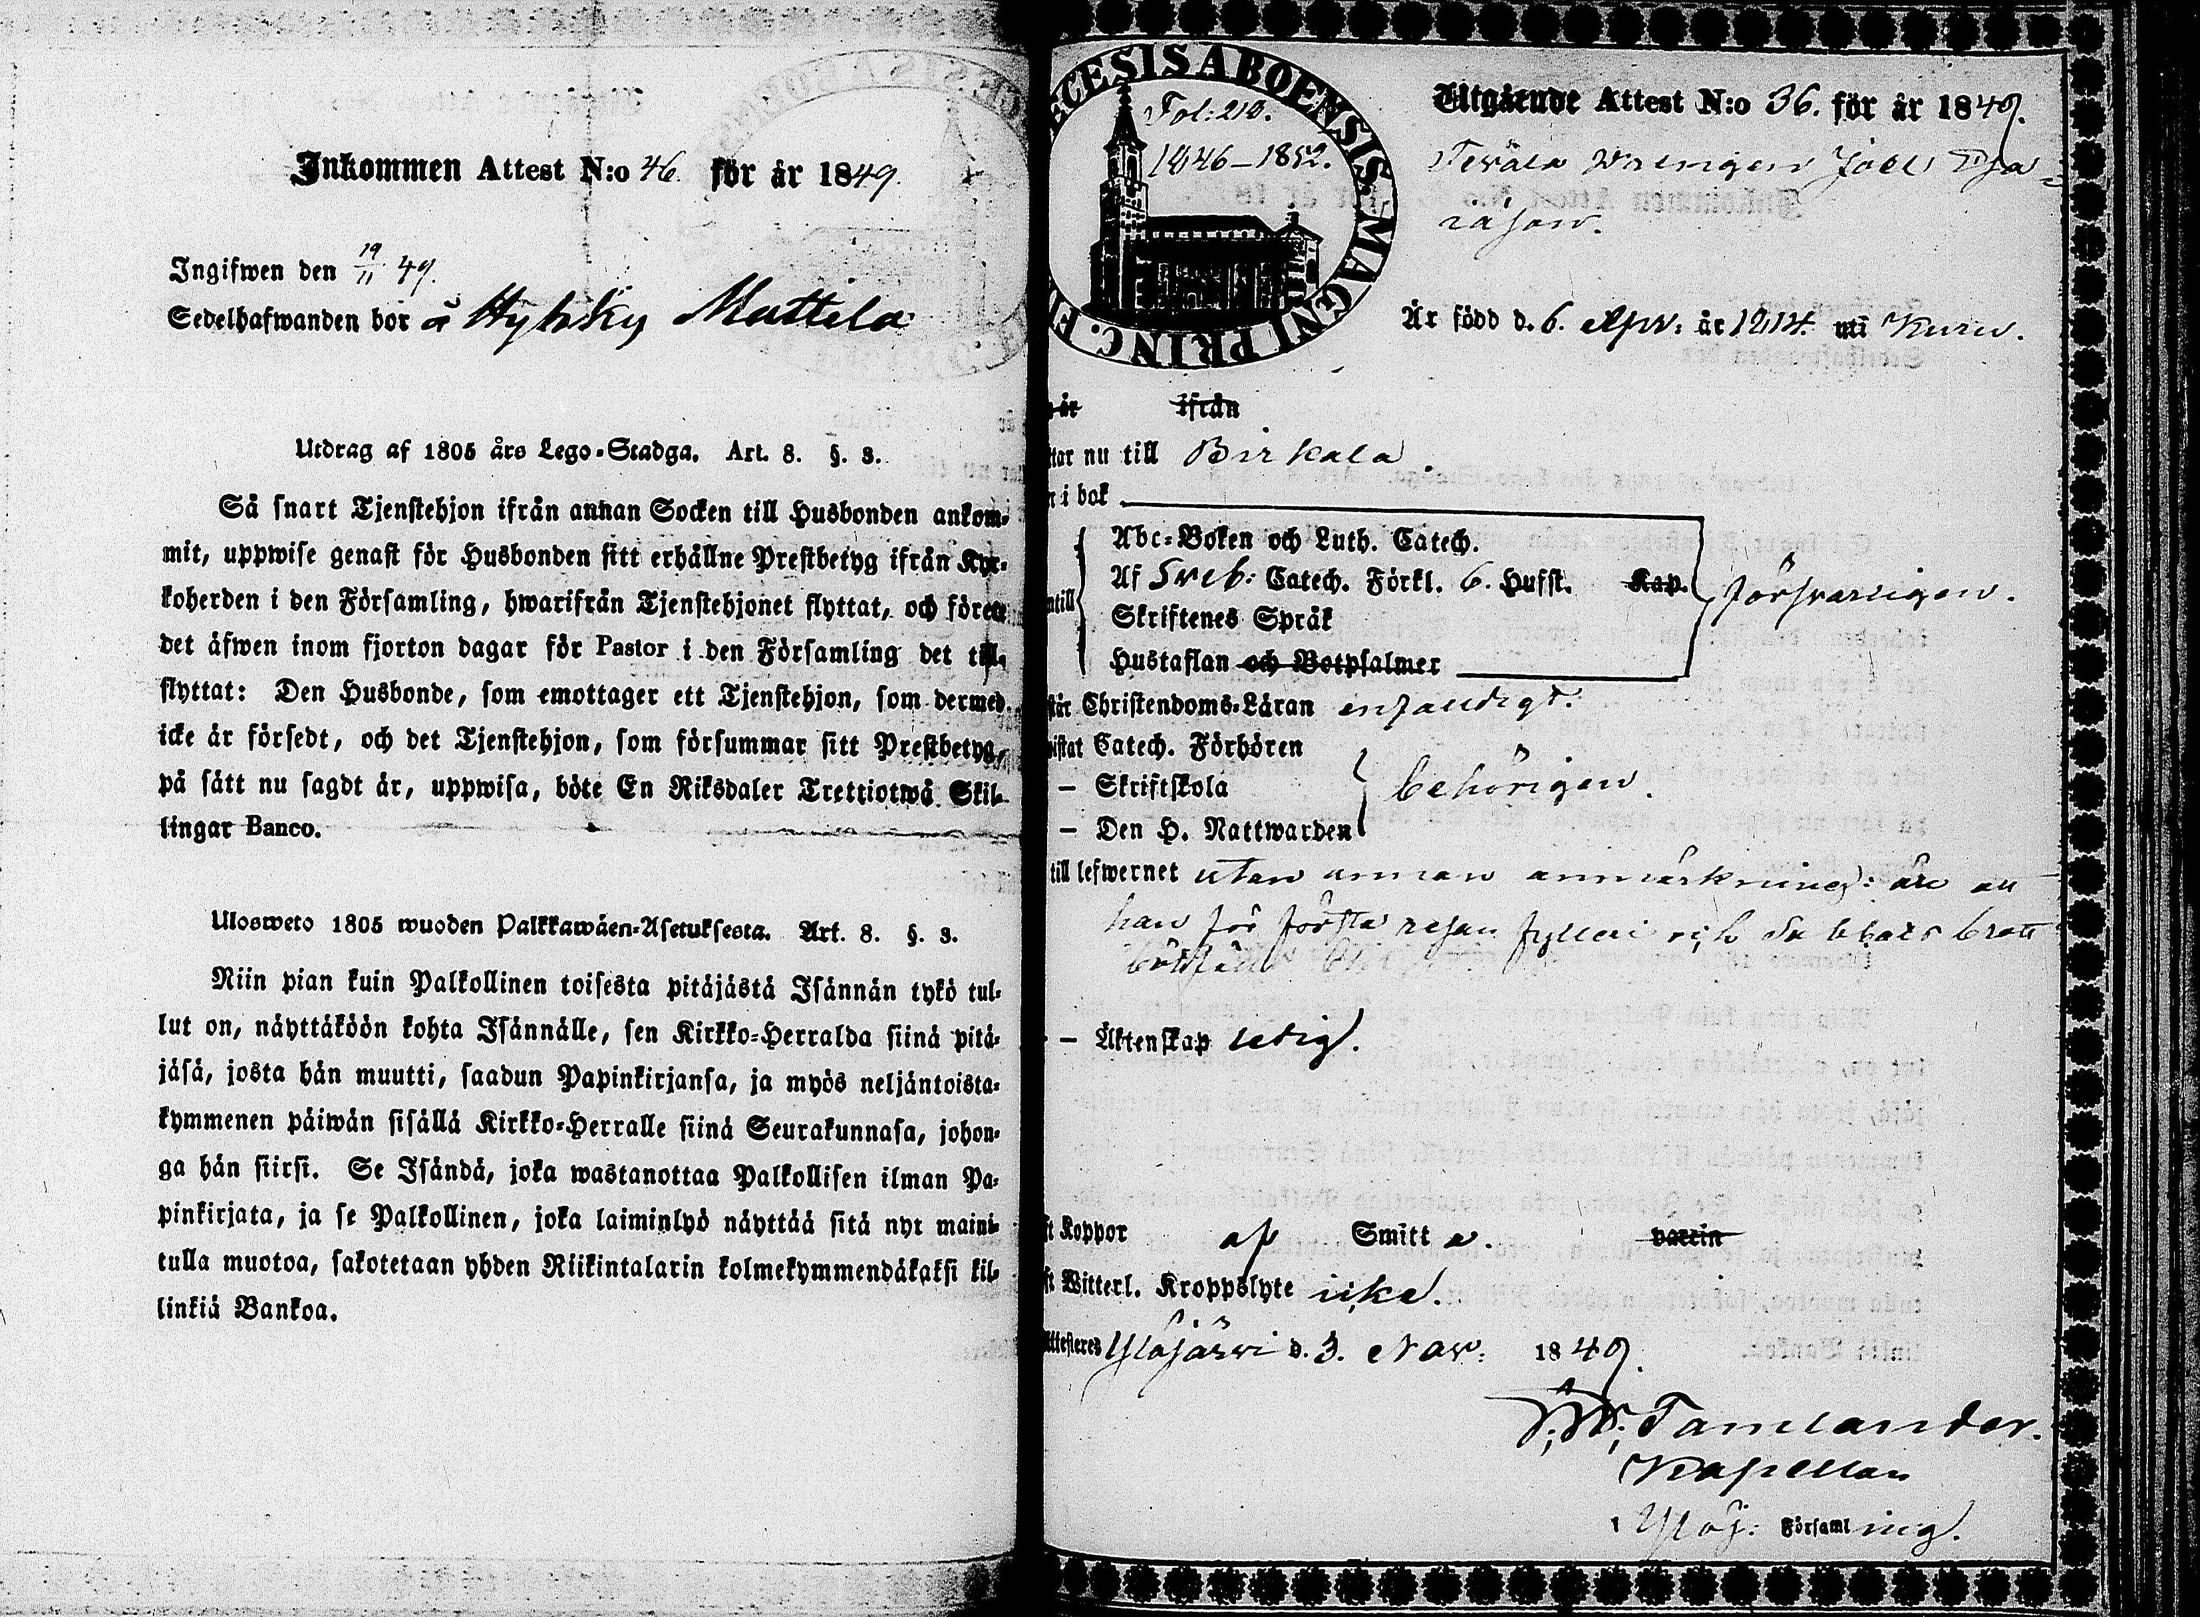 Inkommen Attest N:o 46. för år 1849.
Ingifwen den 19/11 49.
Sedelhafwanden bor å Hyhky Mattila
Utdrag af 1805 års Lego-Stadga. Art. 8. §. 3.
Så snart Tjenstehjon ifrån annan Socken till Husbonden ankom-
mit, uppwise genast för Husbonden sitt erhållne Prestbetyg ifrån Kyr-
koherden i den Församling, hwarifrån Tjenstehjonet flyttat, och förete
det äfwen inom fjorton dagar för Pastor i den Församling det till-
flyttat: Den Husbonde, som emottager ett Tjenstehjon, som dermed
icke är försedt, och det Tjenstehjon, som försummar sitt Prestbetyg,
på sätt nu sagdt är, uppwisa, böte En Riksdaler Trettiotwå Skil-
lingar Banco.
Ulosweto 1805 wuoden Palkkawäen-Asetuksesta. Art. 8. §. 3.
Niin pian kuin Palkollinen toisesta pitäjästä Isännän tykö tul-
lut on, näyttäköön kohta Isännälle, sen Kirkko-Herralda siinä pitä-
jäsä, josta hän muutti, saadun Papinkirjansa, ja myös neljäntoista-
kymmenen päiwän sisällä Kirkko-Herralle siinä Seurakunnasa, johon-
ga hän siirsi. Se Isändä, joka wastanottaa Palkollisen ilman Pa-
pinkirjata, ja se Palkollinen, joka laiminlyö näyttää sitä nyt maini-
tulla muotoa, sakotetaan yhden Riikintalarin kolmekymmendäkaksi kil-
linkiä Bankoa.
ECESIS ABOENSIS. MAGNI PRINC. F
Fol: 210.
1846-1852.
Utgående Attest N:o 36. för år 1849.
Drängen Joel
Är född d. 6. Apr: år 1814. uti Kuru.
år ifrån
tar nu till Birkala.
i bok
Abc-Boken och Luth. Catech.
Af Sveb: Catech. Förkl. 6. Hufst. Kap. försvarligen.
ntill
Skriftenes Språk
Hustaflan och Botpsalmer
står Christendoms-Läran enfaldigt.
istat Catech. Förhören
— Skriftskola behörigen.
— Den H. Nattwarden
till lefwernet utan annan anmärkning: än att
han för första resan fylleri
— Äktenskap ledig.
ft Koppor af Smitt a. vaccin
ft Witterl. Kroppslyte icke.
Attesteres Ylöjärvi d. 3. Nov: 1849.
Tamlander.
Kapellan
i Ylöj: Församling.